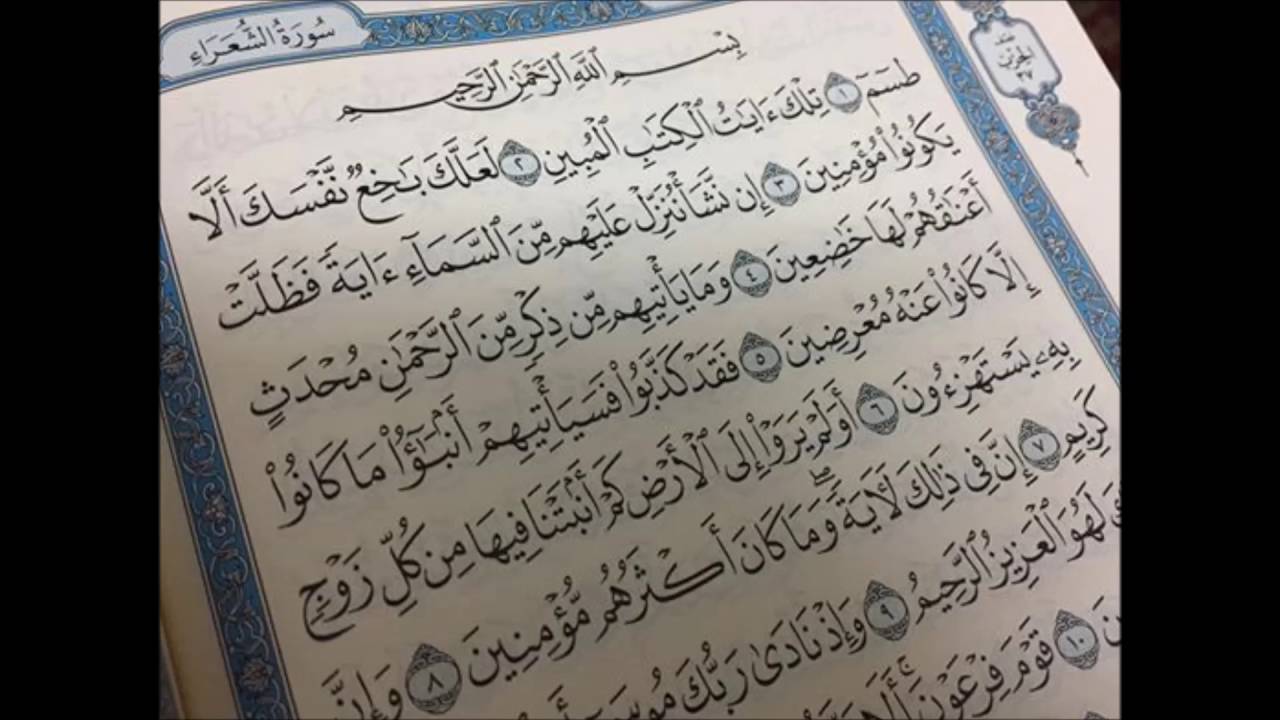 سُورَةُ الشُّعَرَاءِ
الحزب ٣٧
بِسْمِ ٱللَّهِ ٱلرَّحْمَٰنِ ٱلرَّحِيمِ
طسٓمٓ ١ تِلْكَ ءَايَٰتُ ٱلْكِتَٰبِ ٱلْمُبِينِ ٢ لَعَلَّكَ بَٰخِعٌ نَّفْسَكَ أَلَّا
يَكُونُوا۟ مُؤْمِنِينَ ٣ إِن نَّشَأْ نُنَزِّلْ عَلَيْهِم مِّنَ ٱلسَّمَآءِ ءَايَةً فَظَلَّتْ
أَعْنَٰقُهُمْ لَهَا خَٰضِعِينَ ٤ وَمَا يَأْتِيهِم مِّن ذِكْرٍ مِّنَ ٱلرَّحْمَٰنِ مُحْدَثٍ
إِلَّا كَانُوا۟ عَنْهُ مُعْرِضِينَ ٥ فَقَدْ كَذَّبُوا۟ فَسَيَأْتِيهِمْ أَنۢبَٰٓؤُا۟ مَا كَانُوا۟
بِهِۦ يَسْتَهْزِءُونَ ٦ أَوَلَمْ يَرَوْا۟ إِلَى ٱلْأَرْضِ كَمْ أَنۢبَتْنَا فِيهَا مِن كُلِّ زَوْجٍ
كَرِيمٍ ٧ إِنَّ فِى ذَٰلِكَ لَءَايَةً ۖ وَمَا كَانَ أَكْثَرُهُم مُّؤْمِنِينَ ٨ وَإِنَّ
لَهُوَ ٱلْعَزِيزُ ٱلرَّحِيمُ ٩ وَإِذْ نَادَىٰ رَبُّكَ مُوسَىٰٓ
١٠ قَوْمَ فِرْعَوْنَ ۚ أَلَا